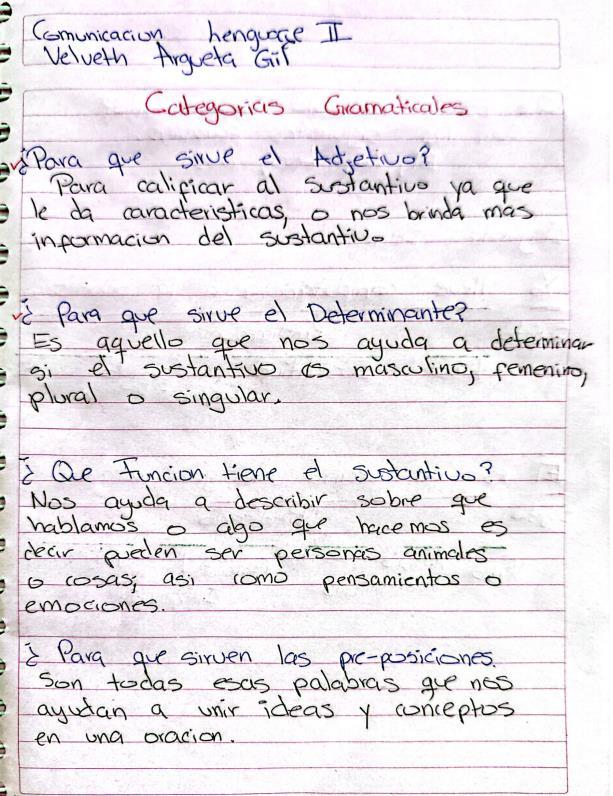 Comunicacion Lenguaje II
Velveth Argueta Gil
Categorias Gramaticales
¿Para que sirve el Adjetivo?
Para calificar al sustantivo ya que
le da caracteristicas, o nos brinda mas
informacion del sustantivo
¿Para que sirve el Determinante?
Es aquello que nos ayuda a determinar
si el sustantivo es masculino, femenino,
plural o singular.
¿Que Funcion tiene el sustantivo?
Nos ayuda a describir sobre que
hablamos o algo que hacemos es
decir pueden ser personas animales
o cosas; asi como pensamientos o
emociones.
¿Para que sirven las pre-posiciones.
Son todas esas palabras que nos
ayudan a unir ideas y conceptos
en una oracion.